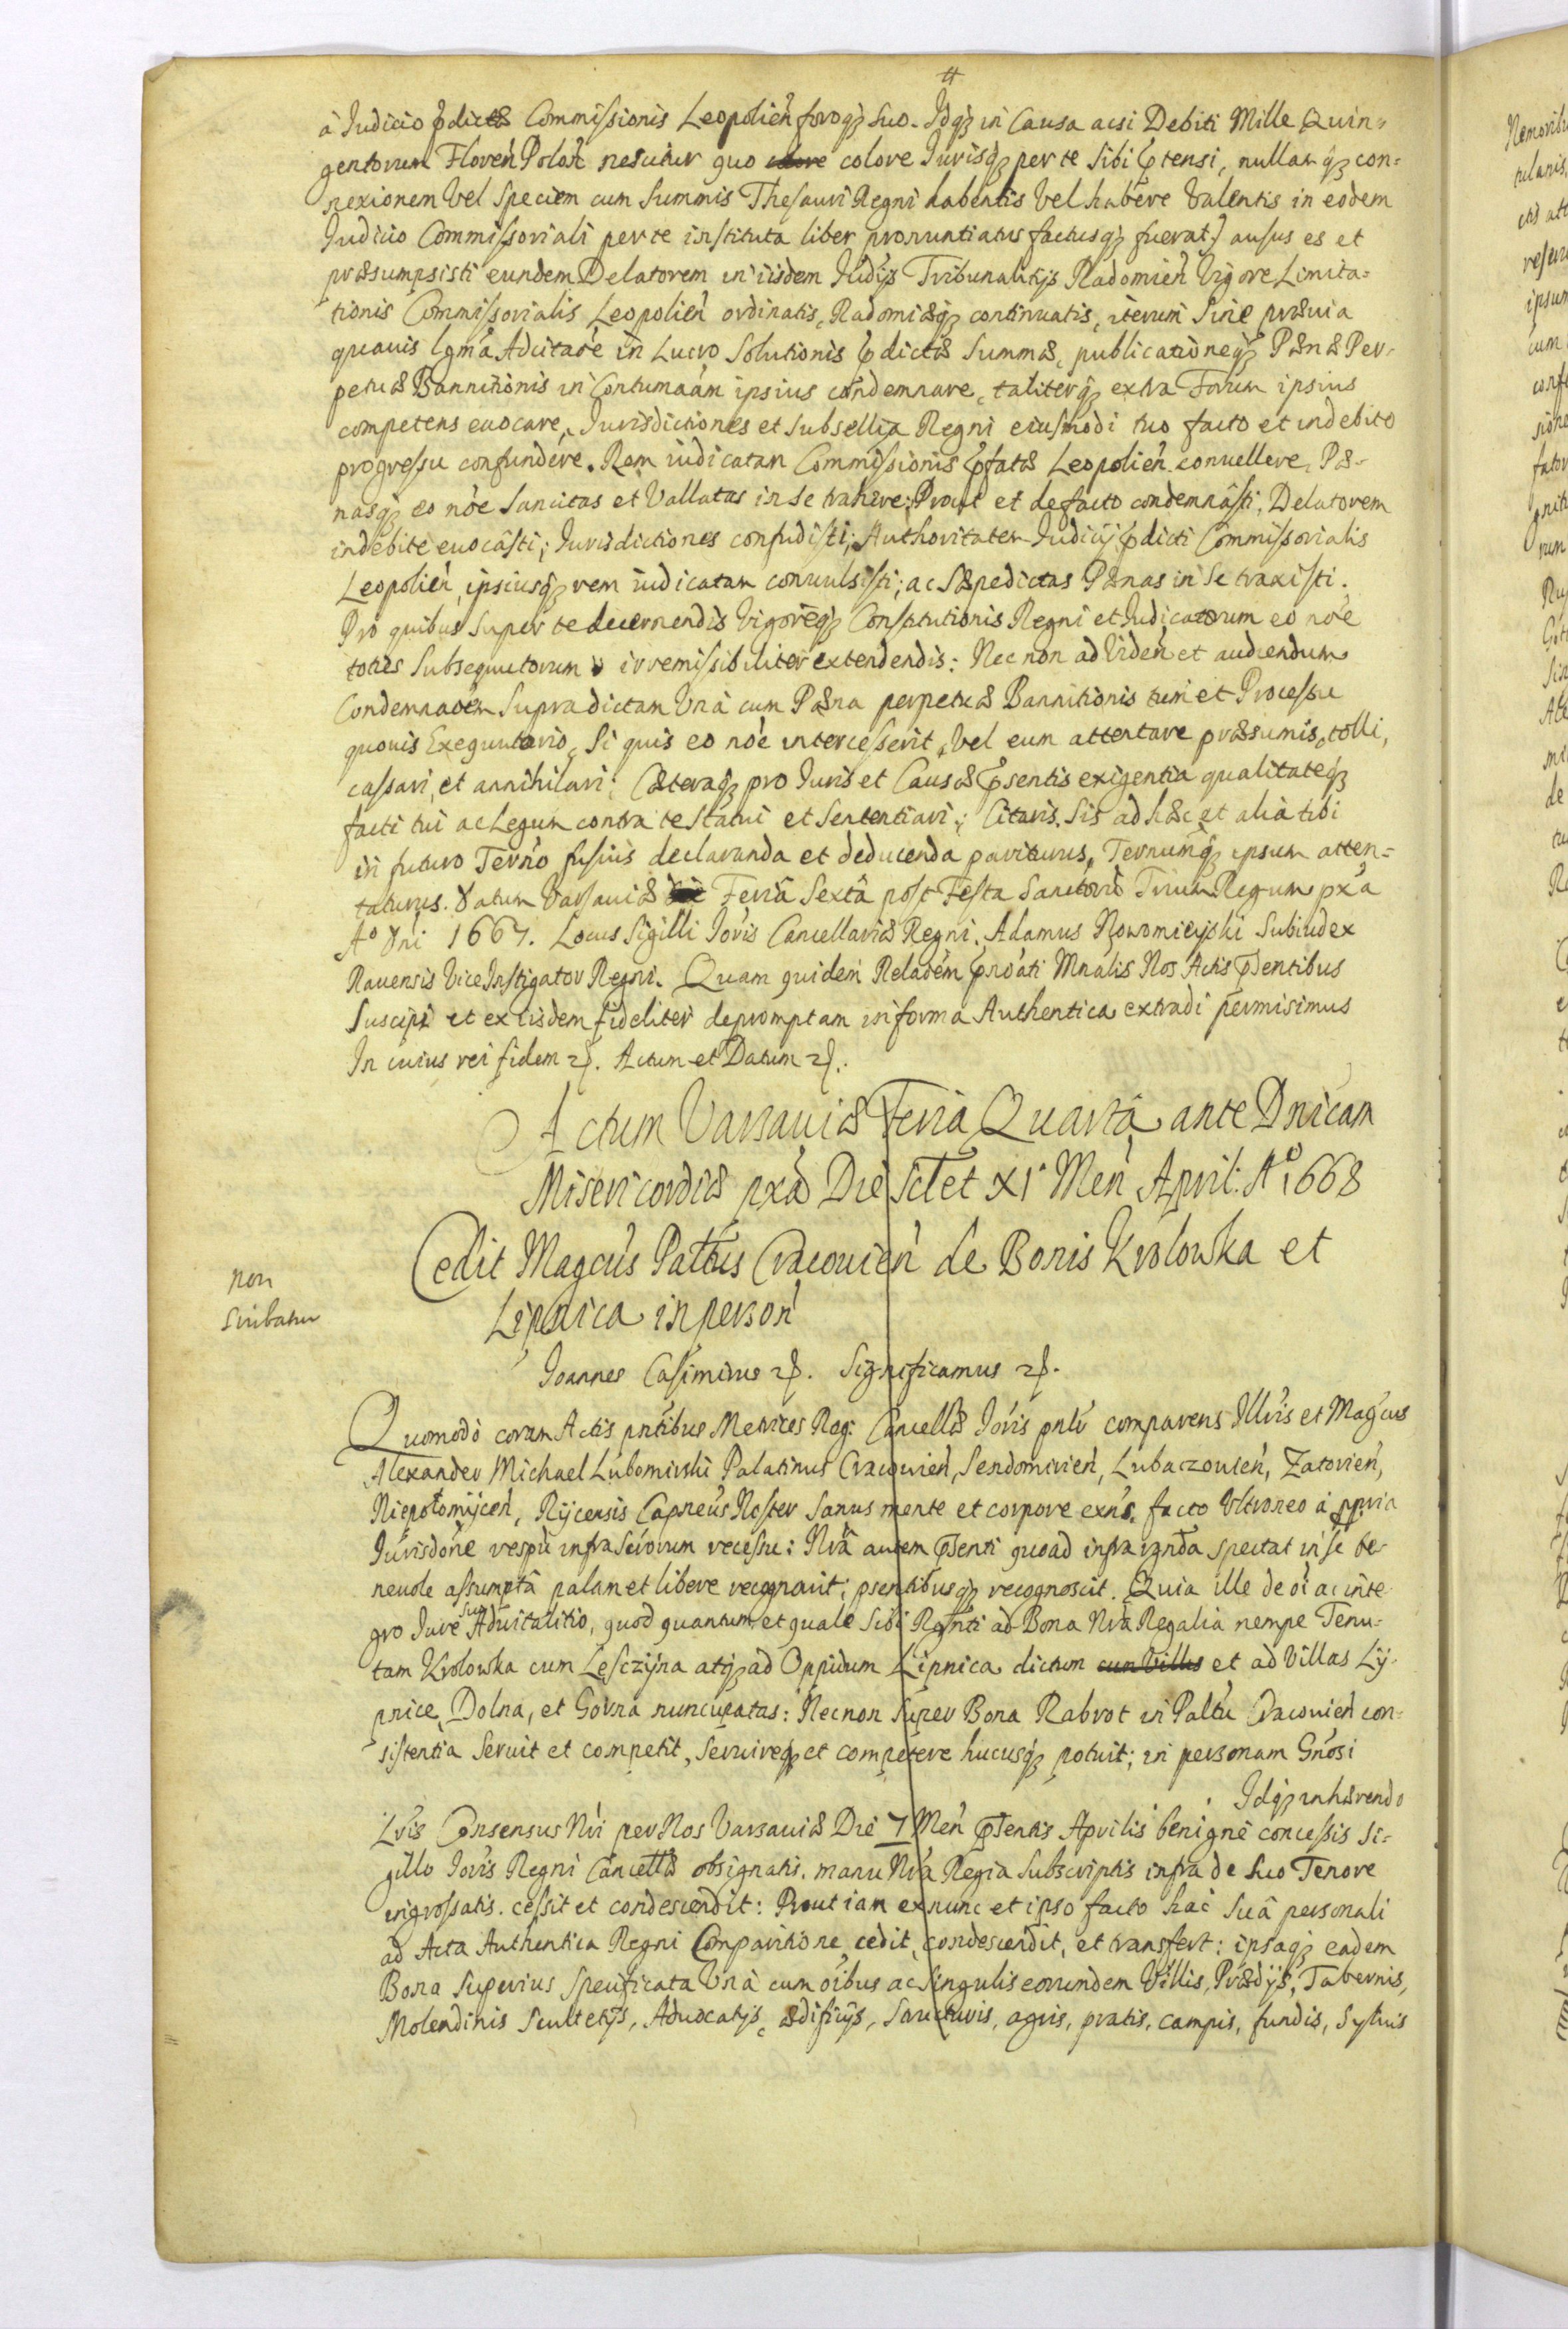 à Judicio p̄dictæ Commissionis Leopolień foroq; suo. Idq; in Causa acsi Debiti Mille Quin=
gentorum Floreń Poloń nescitur quo colore Jurisq; per te sibi p̄tensi, nullam q; con=
nexionem vel speciem cum Summis Thesauri Regni habentis vel habere valentis in eodem
Judicio Commissoriali per te instituta liber pronuntiatus factusq; fuerat) ausus es et
præsumpsisti eundem Delatorem in iisdem Judijs Tribunalitijs Radomień Vigore Limita=
tionis Commissorialis Leopolień ordinatis, Radomiæq; continuatis, iterum sine prævia
quavis lgm̃a Adcitaõe in Lucro Solutionis p̄dictæ Summæ, publicationeq; Pænæ Per=
petuæ Bannitionis in Contumaãm ipsius condemnare, taliterq; extra Forum ipsius
competens evocare, Jurisdictiones et Subsellia Regni eiusmodi tuo facto et indebito
progressu confundere. Rem iudicatam Commissionis p̄fatæ Leopolień convellere, Pæ=
nasq; eo nõe Sancitas et Vallatas in se trahere; Prout et de facto condemnâsti, Delatorem
indebitè evocâsti; Jurisdictiones confudisti; Authoritatem Judicij p̄dicti Commissorialis
Leopolień, ipsiusq; rem iudicatam convulsisti; ac Sæpedictas Pænas in se traxisti.
Pro quibus super te decernendis Vigoreq; Constitutionis Regni et Judicatorum eo nõe
toties Subsequutorum irremissibiliter extendendis: Nec non ad Videń et audiendum
Condemnaõem Supradictam Unà cum Pæna perpetuæ Bannitionis tum et Processu
quovis Exequutorio, Si quis eo nõe intercesserit, vel eum attentare præsumis, tolli,
cassari, et annihilari; Cæteraq; pro Juris et Causæ p̄sentis exigentia qualitateq;
facti tui ac Legum contra te statui et Sententiari; Citaris. Sis ad hæc et alia tibi
in futuro Termo fusius declaranda et deducenda pariturus, Termumq; ipsum atten=
taturus. Datum Varsaviæ Feriâ Sextâ post Festa Sanctorũ Trium Regum px̃a
Aº Dni 1667. Locus Sigilli Joris Cancellariæ Regni. Adamus Nowomieyski Subiudex
Ravensis Vice Instigator Regni. Quam quidem Relaõem Mnalis Nos Actis p̄sentibus
Suscipi et ex iisdem fideliter depromptam in forma Authentica extradi permisimus
In cuius rei fidem ꝛ. Actum et Datum ꝛ.
Actum Varsaviæ Feriâ Quartâ ante Dnicam
Misericordiæ pxã Die sctet XI Meń April: Aº 1668
Cedit Magcus Paltus Cracovień de Bonis Krolowka et
Lipnica in person̄
non
scribatur
Joannes Casimirus ꝛ. Significamus ꝛ.
Quomodò coram Actis pntibus Metrices Reg: Cancellæ Joris pnlr comparens Illris et Magcus
Alexander Michael Lubomirski Palatinus Cracovień, Sendomirień, Lubaczovień, Zatorień,
Niepołomijceń, Rijcensis Capneus Noster sanus mente et corpore exns. facto Ultroneo à ppria
Jurisdõne respũ infrascriptorum recessu: Nrâ autem p̄senti quoad infra spectat in se be=
nevole assumptâ palam et libere recognovit; p̄sentibusq; recognoscit. Quia ille de õi ac inte
gro Jure suo Advitalitio, quod quantum et quale sibi Rgnti ad Bona Nrã Regalia nempe Tenu=
tam Krolowka cum Leszczijna atq; ad Oppidum Lipnica dictum cum Villis et ad Villas Lij=
pnice, Dolna, et Gorna nuncupatas: Necnon super Bona Rabrot in Paltu Cracovień con=
sistentia servit et competit, servireq; et competere hucusq; potuit; in personam Gnosi
Idq; inhærendo
Lris Consensus Nri per Nos Varsaviæ Die 7 Meń p̄sentis Aprilis benignè concessis Si=
gillo Joris Regni Cancellæ obsignatis. manu Nrã Regia subscriptis infra de suo Tenore
ingrossatis. cessit et condescendit: Prout iam ex nunc et ipso facto hac suâ personali
ad Acta Authentica Regni Comparitione, cedit, condescendit, et transfert: ipsaq; eadem
Bona superius specificata Unà cum õibus ac Singulis eorundem Villis, Prædijs, Tabernis,
Molendinis Scultetijs, Advocatijs, ædificijs, Structuris, agris, pratis, campis, fundis, Sylvis